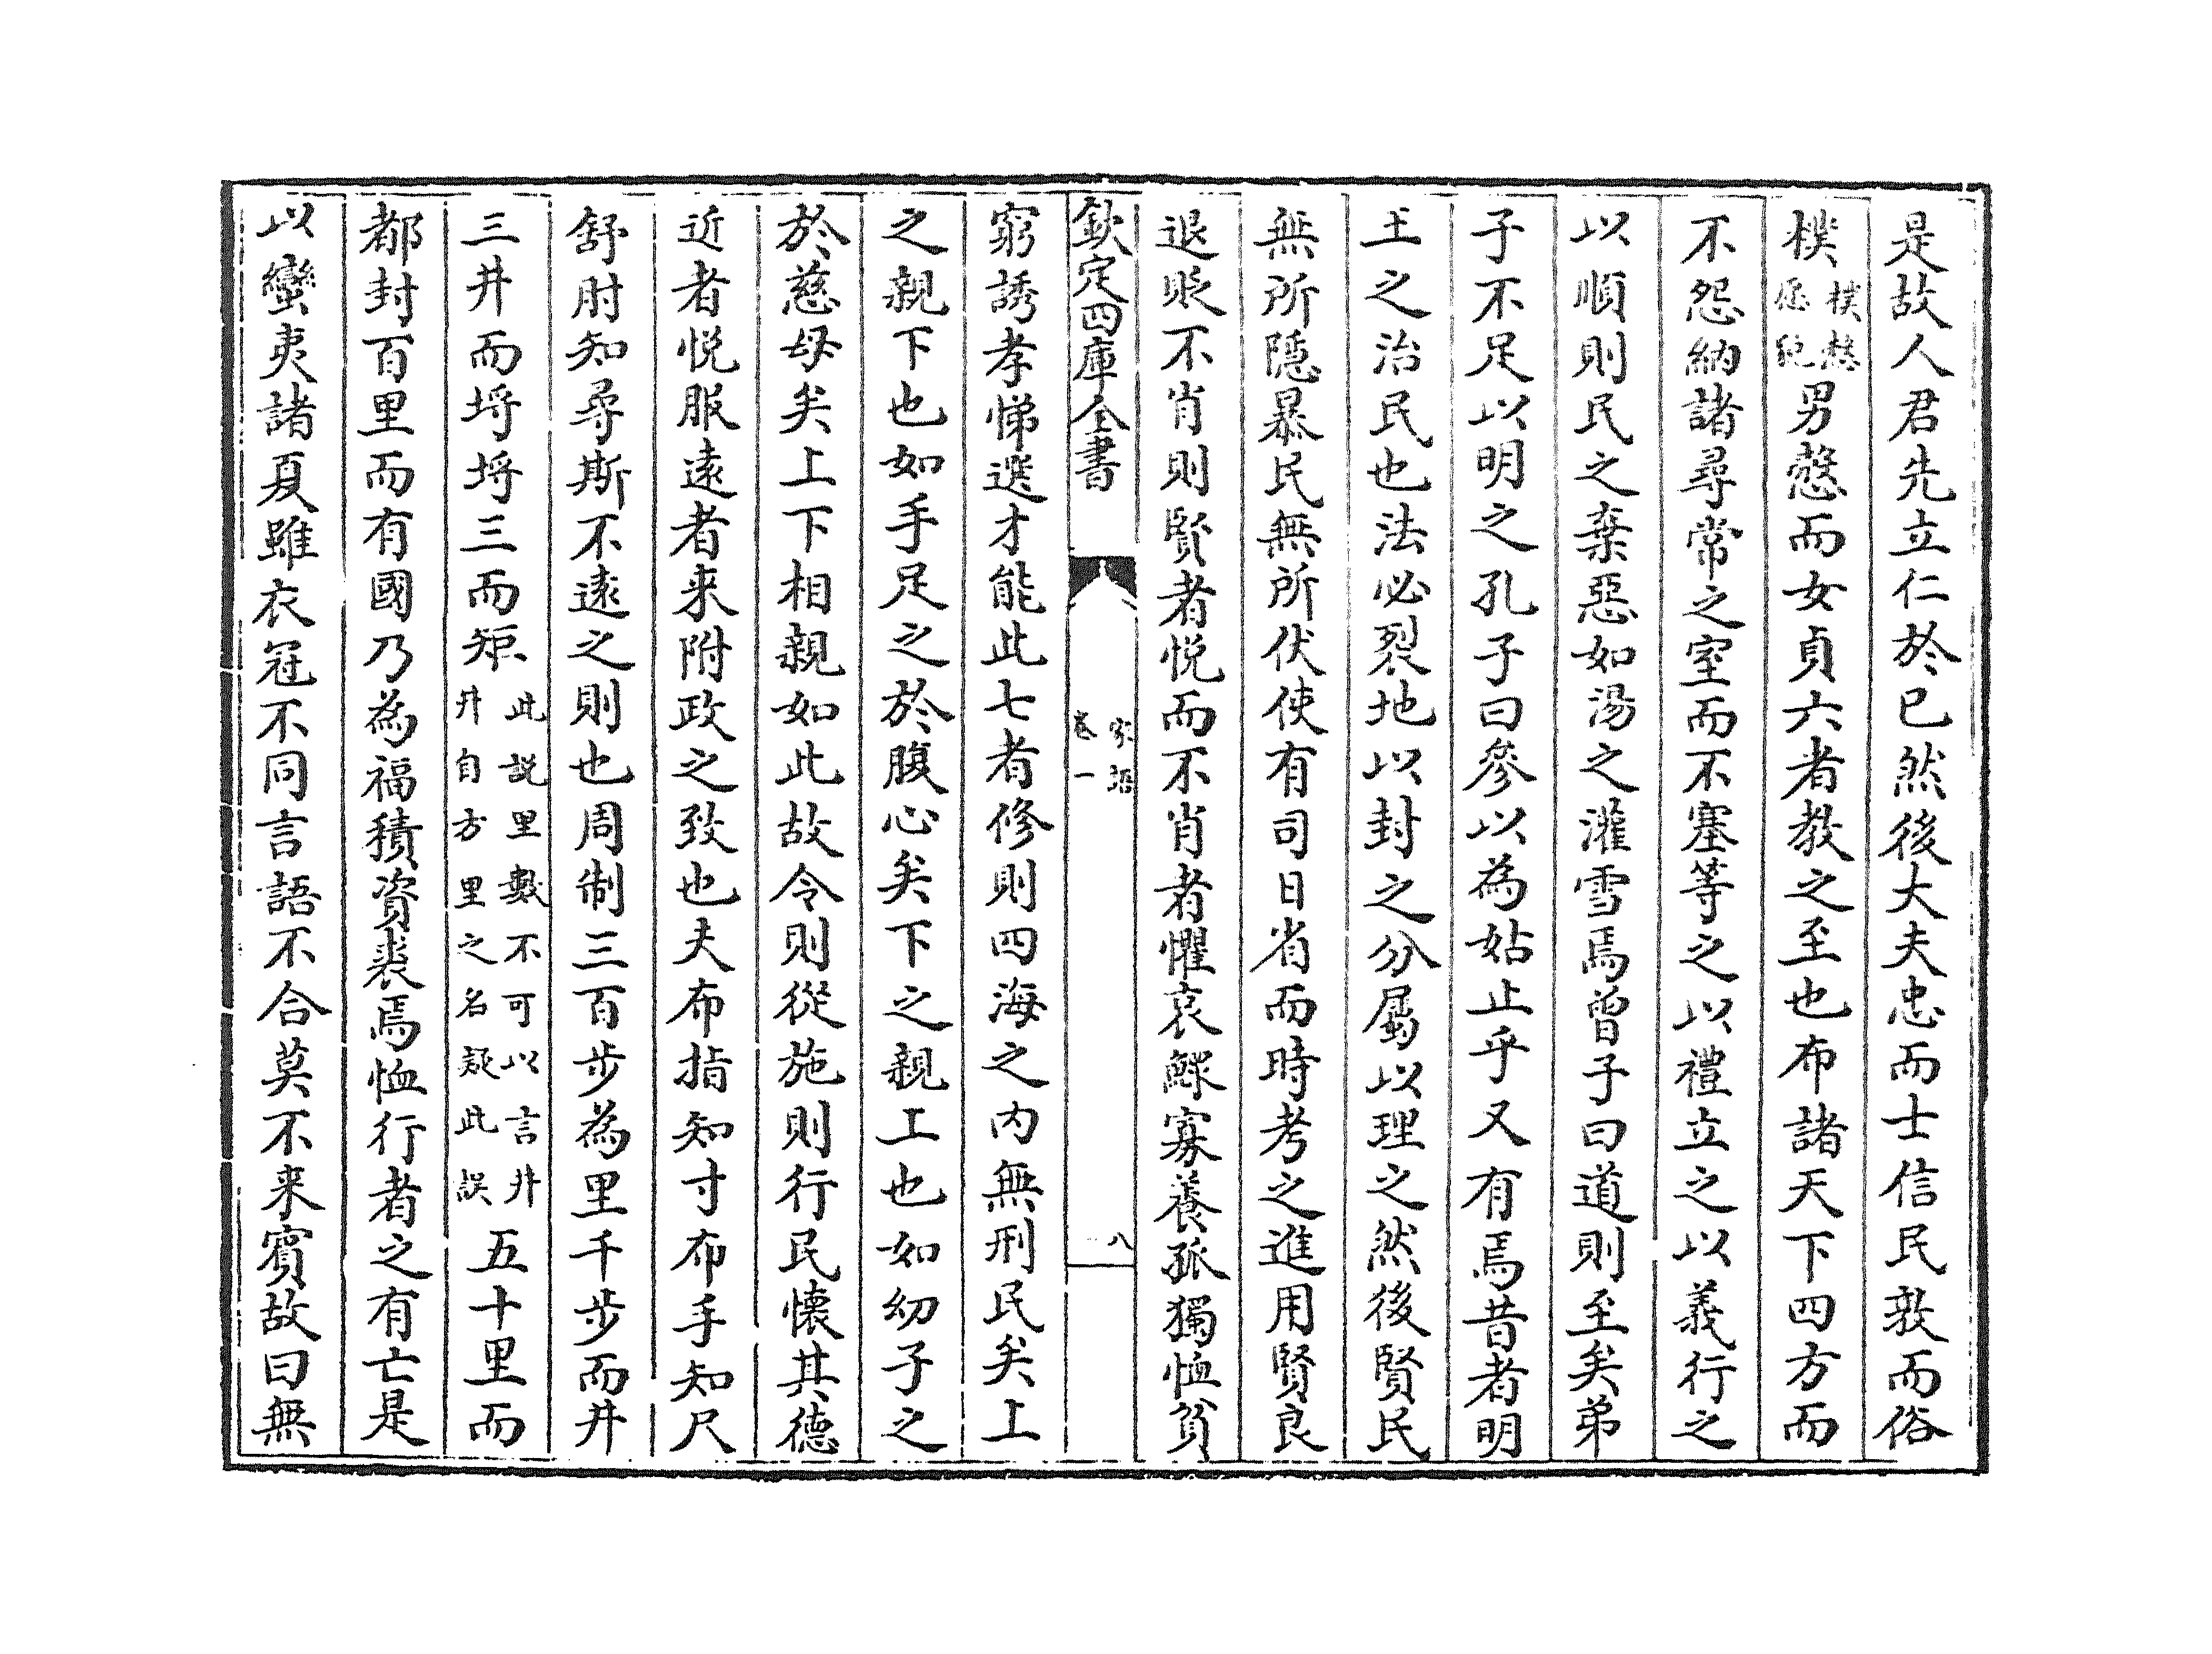 是故人君先立仁於已然後大夫忠而士信民敦而俗
樸樸慤愿貌男慤而女貞六者教之至也布諸天下四方而
不怨納諸尋常之室而不塞等之以禮立之以義行之
以順則民之棄惡如湯之灌雪焉曾子曰道則至矣弟
子不足以明之孔子曰參以為姑止乎又有焉昔者明
王之治民也法必裂地以封之分屬以理之然後賢民
無所隱暴民無所伏使有司日省而時考之進用賢良
退貶不肖則賢者悦而不肖者懼哀鰥寡養孤獨恤貧
欽定四庫全書
家語
卷一
八
窮誘孝悌選才能此七者修則四海之内無刑民矣上
之親下也如手足之於腹心矣下之親上也如幼子之
於慈母矣上下相親如此故令則從施則行民懷其德
近者悦服遠者来附政之致也夫布指知寸布手知尺
舒肘知尋斯不遠之則也周制三百步為里千步而井
三井而埒埒三而矩此説里數不可以言井井自方里之名疑此誤五十里而
都封百里而有國乃為福積資裘焉恤行者之有亡是
以蠻夷諸夏雖衣冠不同言語不合莫不来賓故曰無